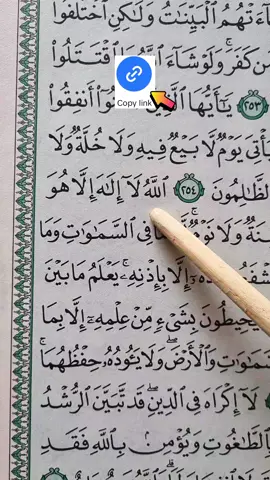 ءَاتَيۡنَٰهُمُ ٱلۡبَيِّنَٰتُ وَلَٰكِنِ ٱخۡتَلَفُواْ
مَّن كَفَرَۚ وَلَوۡ شَآءَ ٱللَّهُ مَا ٱقۡتَتَلُواْ
٢٥٣ يَٰٓأَيُّهَا أَنفِقُواْ
Copy link
يَأۡتِيَ يَوۡمٞ لَّا بَيۡعٞ فِيهِ وَلَا خُلَّةٞ وَلَا
ٱلظَّٰلِمُونَ ٢٥٤ ٱللَّهُ لَآ إِلَٰهَ إِلَّا هُوَ
سِنَةٞ وَلَا نَوۡمٞۚ فِي ٱلسَّمَٰوَٰتِ وَمَا
إِلَّا بِإِذۡنِهِۦۚ يَعۡلَمُ مَا بَيۡنَ
يُحِيطُونَ بِشَيۡءٖ مِّنۡ عِلۡمِهِۦٓ إِلَّا بِمَا
ٱلسَّمَٰوَٰتِ وَٱلۡأَرۡضَۖ وَلَا يَـُٔودُهُۥ حِفۡظُهُمَاۚ
لَآ إِكۡرَاهَ فِي ٱلدِّينِۖ قَد تَّبَيَّنَ ٱلرُّشۡدُ
بِٱلطَّٰغُوتِ وَيُؤۡمِنۢ بِٱللَّهِ فَقَدِ